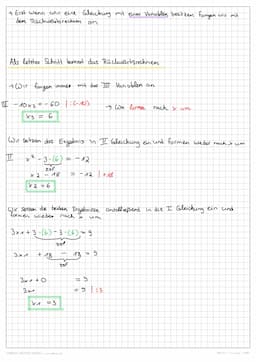 → Erst wenn wir eine Gleichung mit einer Variablen besitzen fangen wir mit
dem Rückwärtsrechnen an
Als letzter Schritt kommt das Rückwärtsrechnen
→ Wir fangen immer mit der III Variablen an
III -10x3 = -60 | :(-10) → Wir formen nach x um
x3 = 6
Wir setzen das Ergebnis in II Gleichung ein und formen wieder nach x um
II x2 - 3·(6) = -12
x2 - 18 = -12 | +18
x2 = 6
Wir setzen die beiden Ergebnisse anschließend in die I Gleichung ein und
formen wieder nach x um
3x1 + 3·(6) - 3·(6) = 9
3x1 + 18 - 18 = 9
3x1 + 0 = 9
3x1 = 9 | :3
x1 = 3